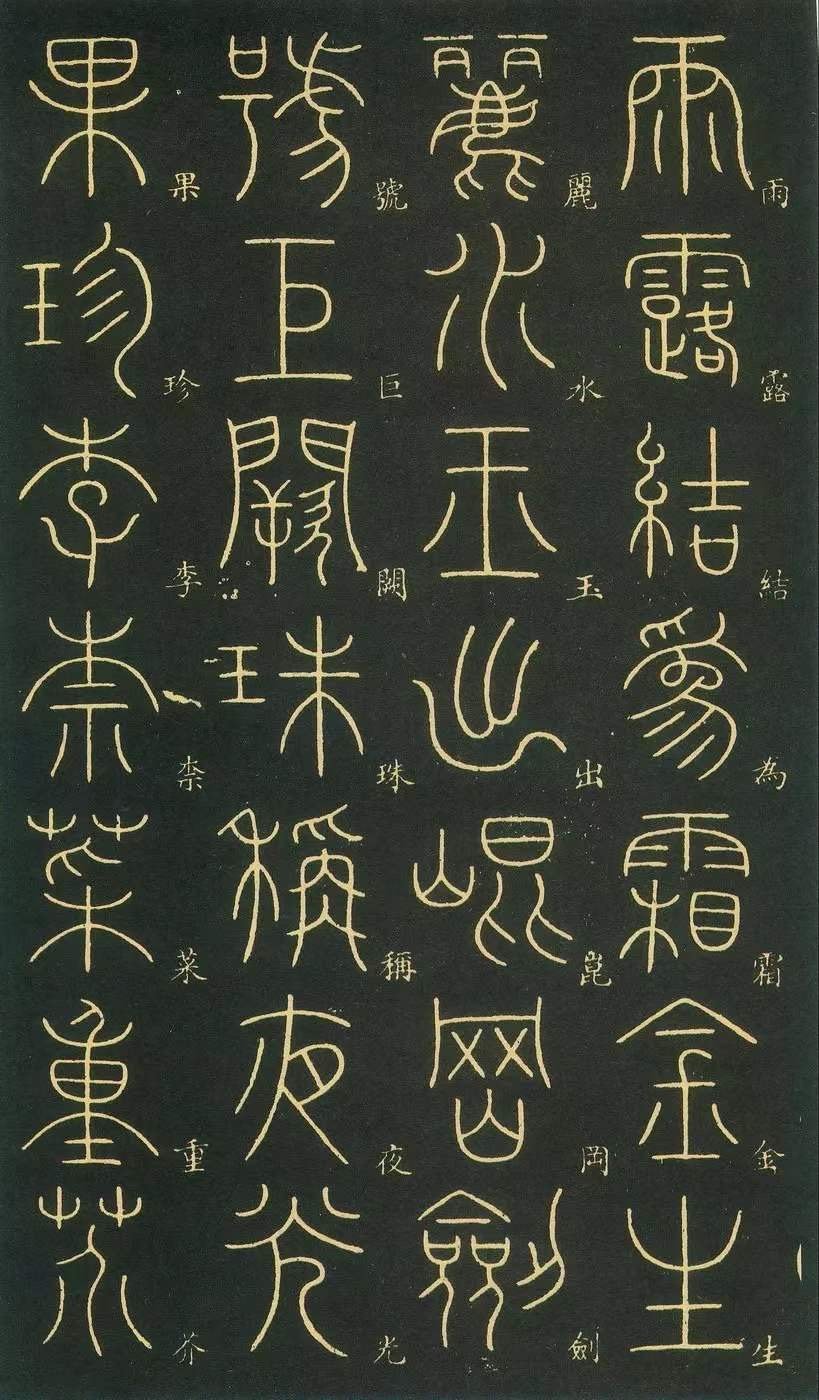 雨露結為霜金生
麗水玉出崑岡劍
號巨闕珠稱夜光
果珍李柰菜重芥